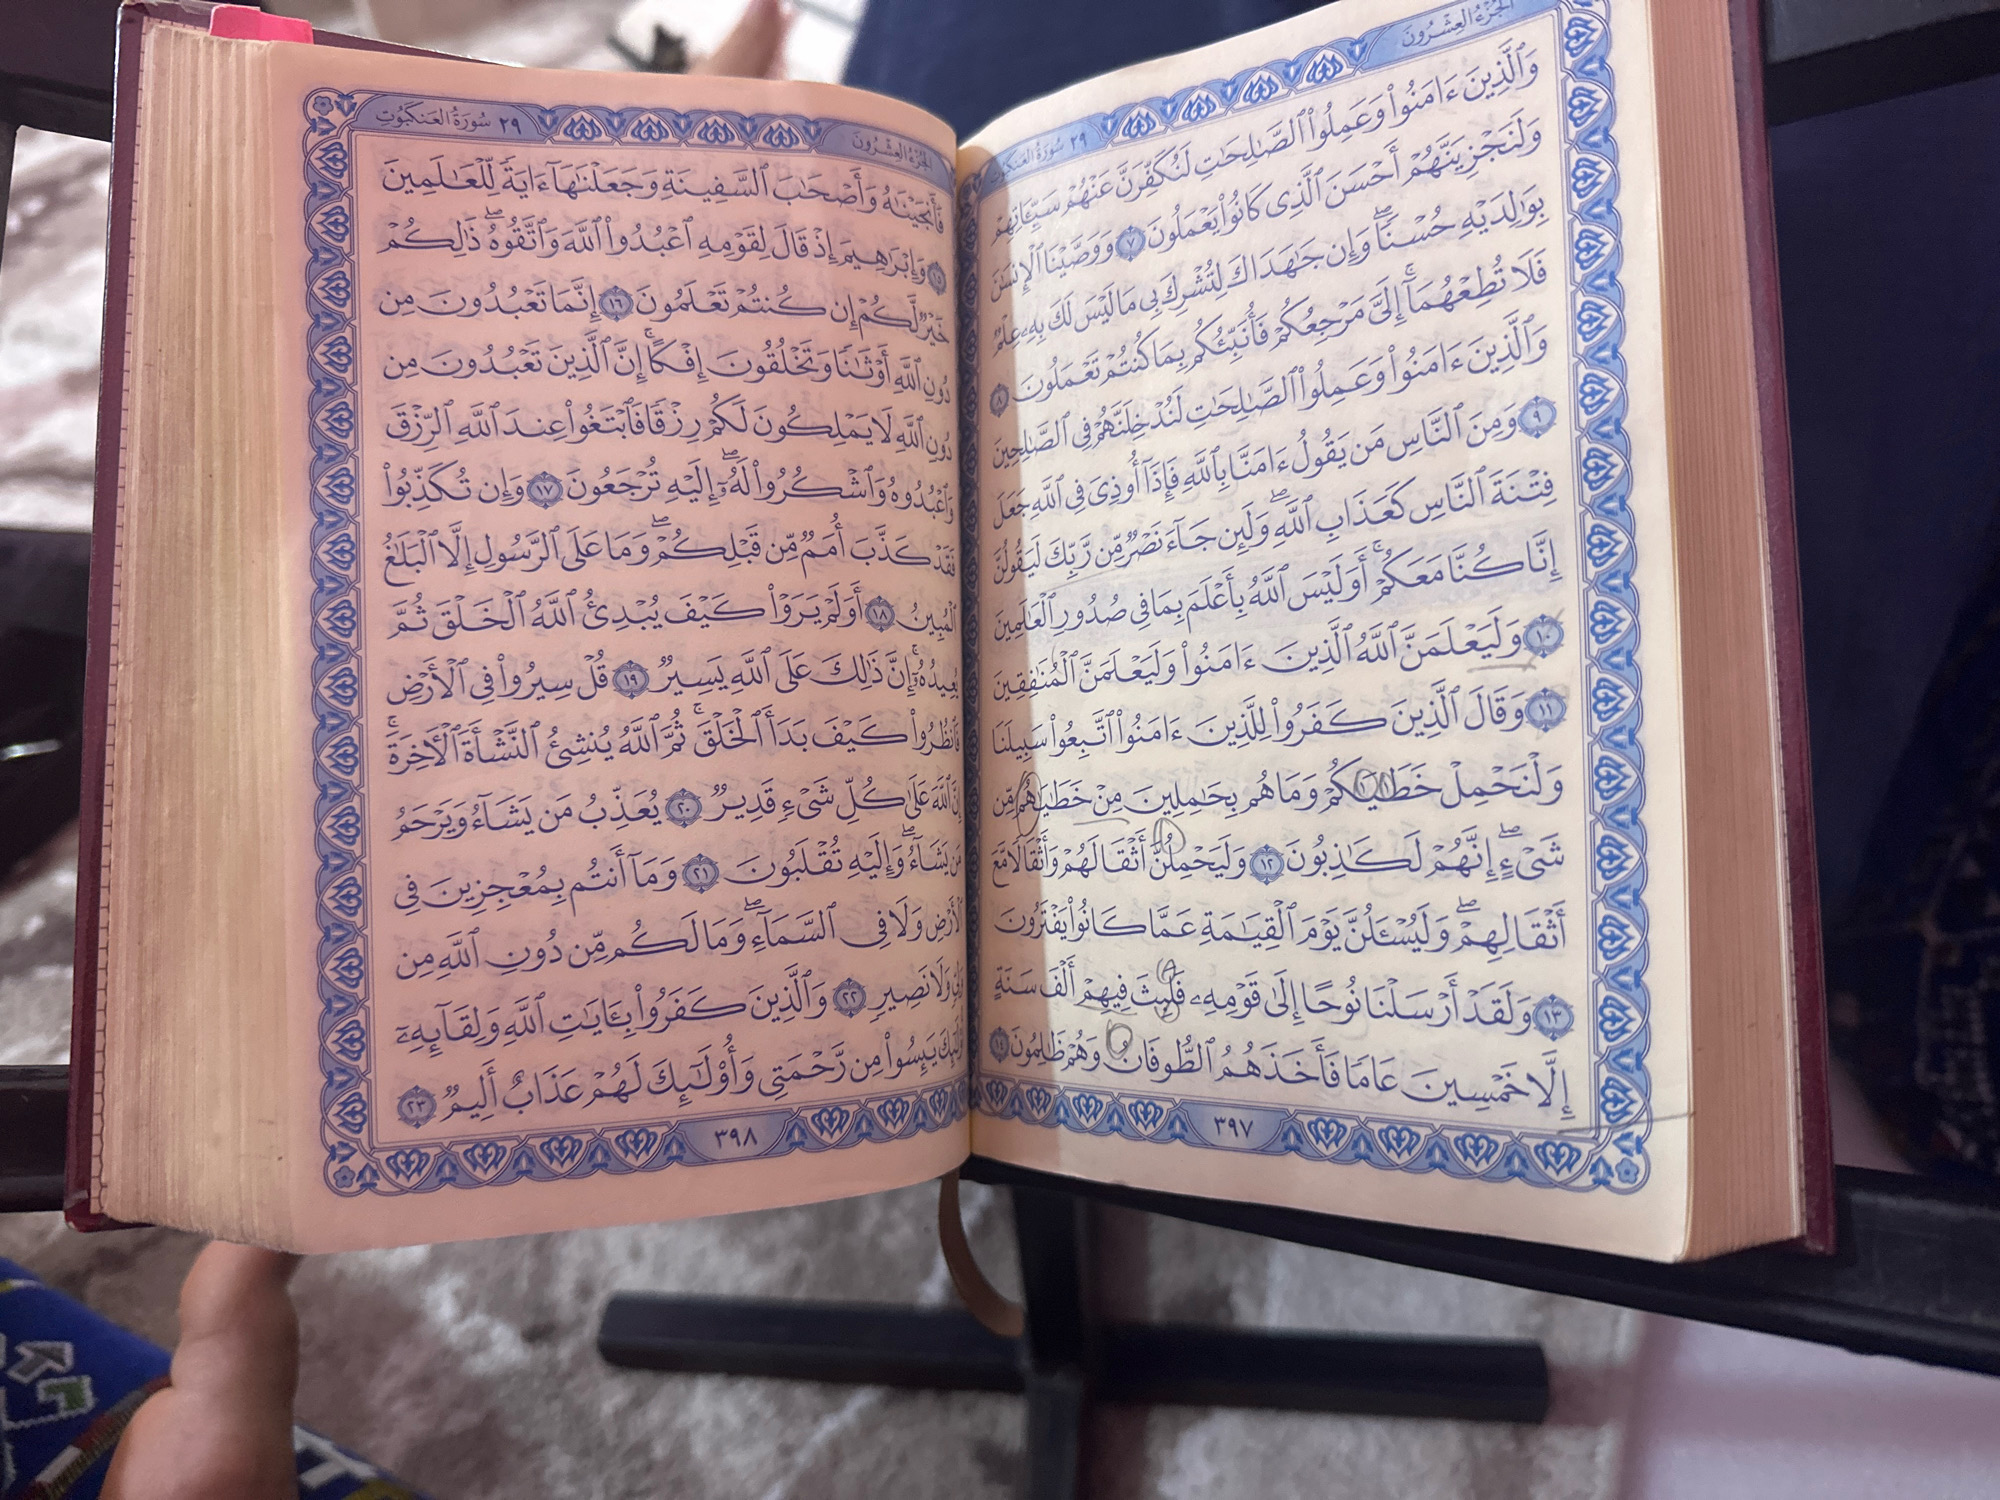 الجزء العشرون
٢٩ سورة العنكبوت
وَٱلَّذِينَ ءَامَنُوا۟ وَعَمِلُوا۟ ٱلصَّـٰلِحَـٰتِ لَنُكَفِّرَنَّ عَنْهُمْ سَيِّـَٔاتِهِمْ
وَلَنَجْزِيَنَّهُمْ أَحْسَنَ ٱلَّذِى كَانُوا۟ يَعْمَلُونَ ٧ وَوَصَّيْنَا ٱلْإِنسَـٰنَ
بِوَٰلِدَيْهِ حُسْنًاۖ وَإِن جَـٰهَدَاكَ لِتُشْرِكَ بِى مَا لَيْسَ لَكَ بِهِۦ عِلْمٌ
فَلَا تُطِعْهُمَآۚ إِلَىَّ مَرْجِعُكُمْ فَأُنَبِّئُكُم بِمَا كُنتُمْ تَعْمَلُونَ ٨
وَٱلَّذِينَ ءَامَنُوا۟ وَعَمِلُوا۟ ٱلصَّـٰلِحَـٰتِ لَنُدْخِلَنَّهُمْ فِى ٱلصَّـٰلِحِينَ
٩ وَمِنَ ٱلنَّاسِ مَن يَقُولُ ءَامَنَّا بِٱللَّهِ فَإِذَآ أُوذِىَ فِى ٱللَّهِ جَعَلَ
فِتْنَةَ ٱلنَّاسِ كَعَذَابِ ٱللَّهِۖ وَلَئِن جَآءَ نَصْرٌ مِّن رَّبِّكَ لَيَقُولُنَّ
إِنَّا كُنَّا مَعَكُمْۚ أَوَلَيْسَ ٱللَّهُ بِأَعْلَمَ بِمَا فِى صُدُورِ ٱلْعَـٰلَمِينَ
١٠ وَلَيَعْلَمَنَّ ٱللَّهُ ٱلَّذِينَ ءَامَنُوا۟ وَلَيَعْلَمَنَّ ٱلْمُنَـٰفِقِينَ
١١ وَقَالَ ٱلَّذِينَ كَفَرُوا۟ لِلَّذِينَ ءَامَنُوا۟ ٱتَّبِعُوا۟ سَبِيلَنَا
وَلْنَحْمِلْ خَطَـٰيَـٰكُمْ وَمَا هُم بِحَـٰمِلِينَ مِنْ خَطَـٰيَـٰهُم مِّن
شَىْءٍۖ إِنَّهُمْ لَكَـٰذِبُونَ ١٢ وَلَيَحْمِلُنَّ أَثْقَالَهُمْ وَأَثْقَالًا مَّعَ
أَثْقَالِهِمْۖ وَلَيُسْـَٔلُنَّ يَوْمَ ٱلْقِيَـٰمَةِ عَمَّا كَانُوا۟ يَفْتَرُونَ
١٣ وَلَقَدْ أَرْسَلْنَا نُوحًا إِلَىٰ قَوْمِهِۦ فَلَبِثَ فِيهِمْ أَلْفَ سَنَةٍ
إِلَّا خَمْسِينَ عَامًا فَأَخَذَهُمُ ٱلطُّوفَانُ وَهُمْ ظَـٰلِمُونَ ١٤
٣٩٧
الجزء العشرون
٢٩ سورة العنكبوت
فَأَنجَيْنَـٰهُ وَأَصْحَـٰبَ ٱلسَّفِينَةِ وَجَعَلْنَـٰهَآ ءَايَةً لِّلْعَـٰلَمِينَ
١٥ وَإِبْرَٰهِيمَ إِذْ قَالَ لِقَوْمِهِ ٱعْبُدُوا۟ ٱللَّهَ وَٱتَّقُوهُۖ ذَٰلِكُمْ
خَيْرٌ لَّكُمْ إِن كُنتُمْ تَعْلَمُونَ ١٦ إِنَّمَا تَعْبُدُونَ مِن
دُونِ ٱللَّهِ أَوْثَـٰنًا وَتَخْلُقُونَ إِفْكًاۚ إِنَّ ٱلَّذِينَ تَعْبُدُونَ مِن
دُونِ ٱللَّهِ لَا يَمْلِكُونَ لَكُمْ رِزْقًا فَٱبْتَغُوا۟ عِندَ ٱللَّهِ ٱلرِّزْقَ
وَٱعْبُدُوهُ وَٱشْكُرُوا۟ لَهُۥٓۖ إِلَيْهِ تُرْجَعُونَ ١٧ وَإِن تُكَذِّبُوا۟
فَقَدْ كَذَّبَ أُمَمٌ مِّن قَبْلِكُمْۖ وَمَا عَلَى ٱلرَّسُولِ إِلَّا ٱلْبَلَـٰغُ
ٱلْمُبِينُ ١٨ أَوَلَمْ يَرَوْا۟ كَيْفَ يُبْدِئُ ٱللَّهُ ٱلْخَلْقَ ثُمَّ
يُعِيدُهُۥٓۚ إِنَّ ذَٰلِكَ عَلَى ٱللَّهِ يَسِيرٌ ١٩ قُلْ سِيرُوا۟ فِى ٱلْأَرْضِ
فَٱنظُرُوا۟ كَيْفَ بَدَأَ ٱلْخَلْقَۚ ثُمَّ ٱللَّهُ يُنشِئُ ٱلنَّشْأَةَ ٱلْـَٔاخِرَةَۚ
إِنَّ ٱللَّهَ عَلَىٰ كُلِّ شَىْءٍ قَدِيرٌ ٢٠ يُعَذِّبُ مَن يَشَآءُ وَيَرْحَمُ
مَن يَشَآءُۖ وَإِلَيْهِ تُقْلَبُونَ ٢١ وَمَآ أَنتُم بِمُعْجِزِينَ فِى
ٱلْأَرْضِ وَلَا فِى ٱلسَّمَآءِۖ وَمَا لَكُم مِّن دُونِ ٱللَّهِ مِن
وَلِىٍّ وَلَا نَصِيرٍ ٢٢ وَٱلَّذِينَ كَفَرُوا۟ بِـَٔايَـٰتِ ٱللَّهِ وَلِقَآئِهِۦٓ
أُو۟لَـٰٓئِكَ يَئِسُوا۟ مِن رَّحْمَتِى وَأُو۟لَـٰٓئِكَ لَهُمْ عَذَابٌ أَلِيمٌ ٢٣
٣٩٨